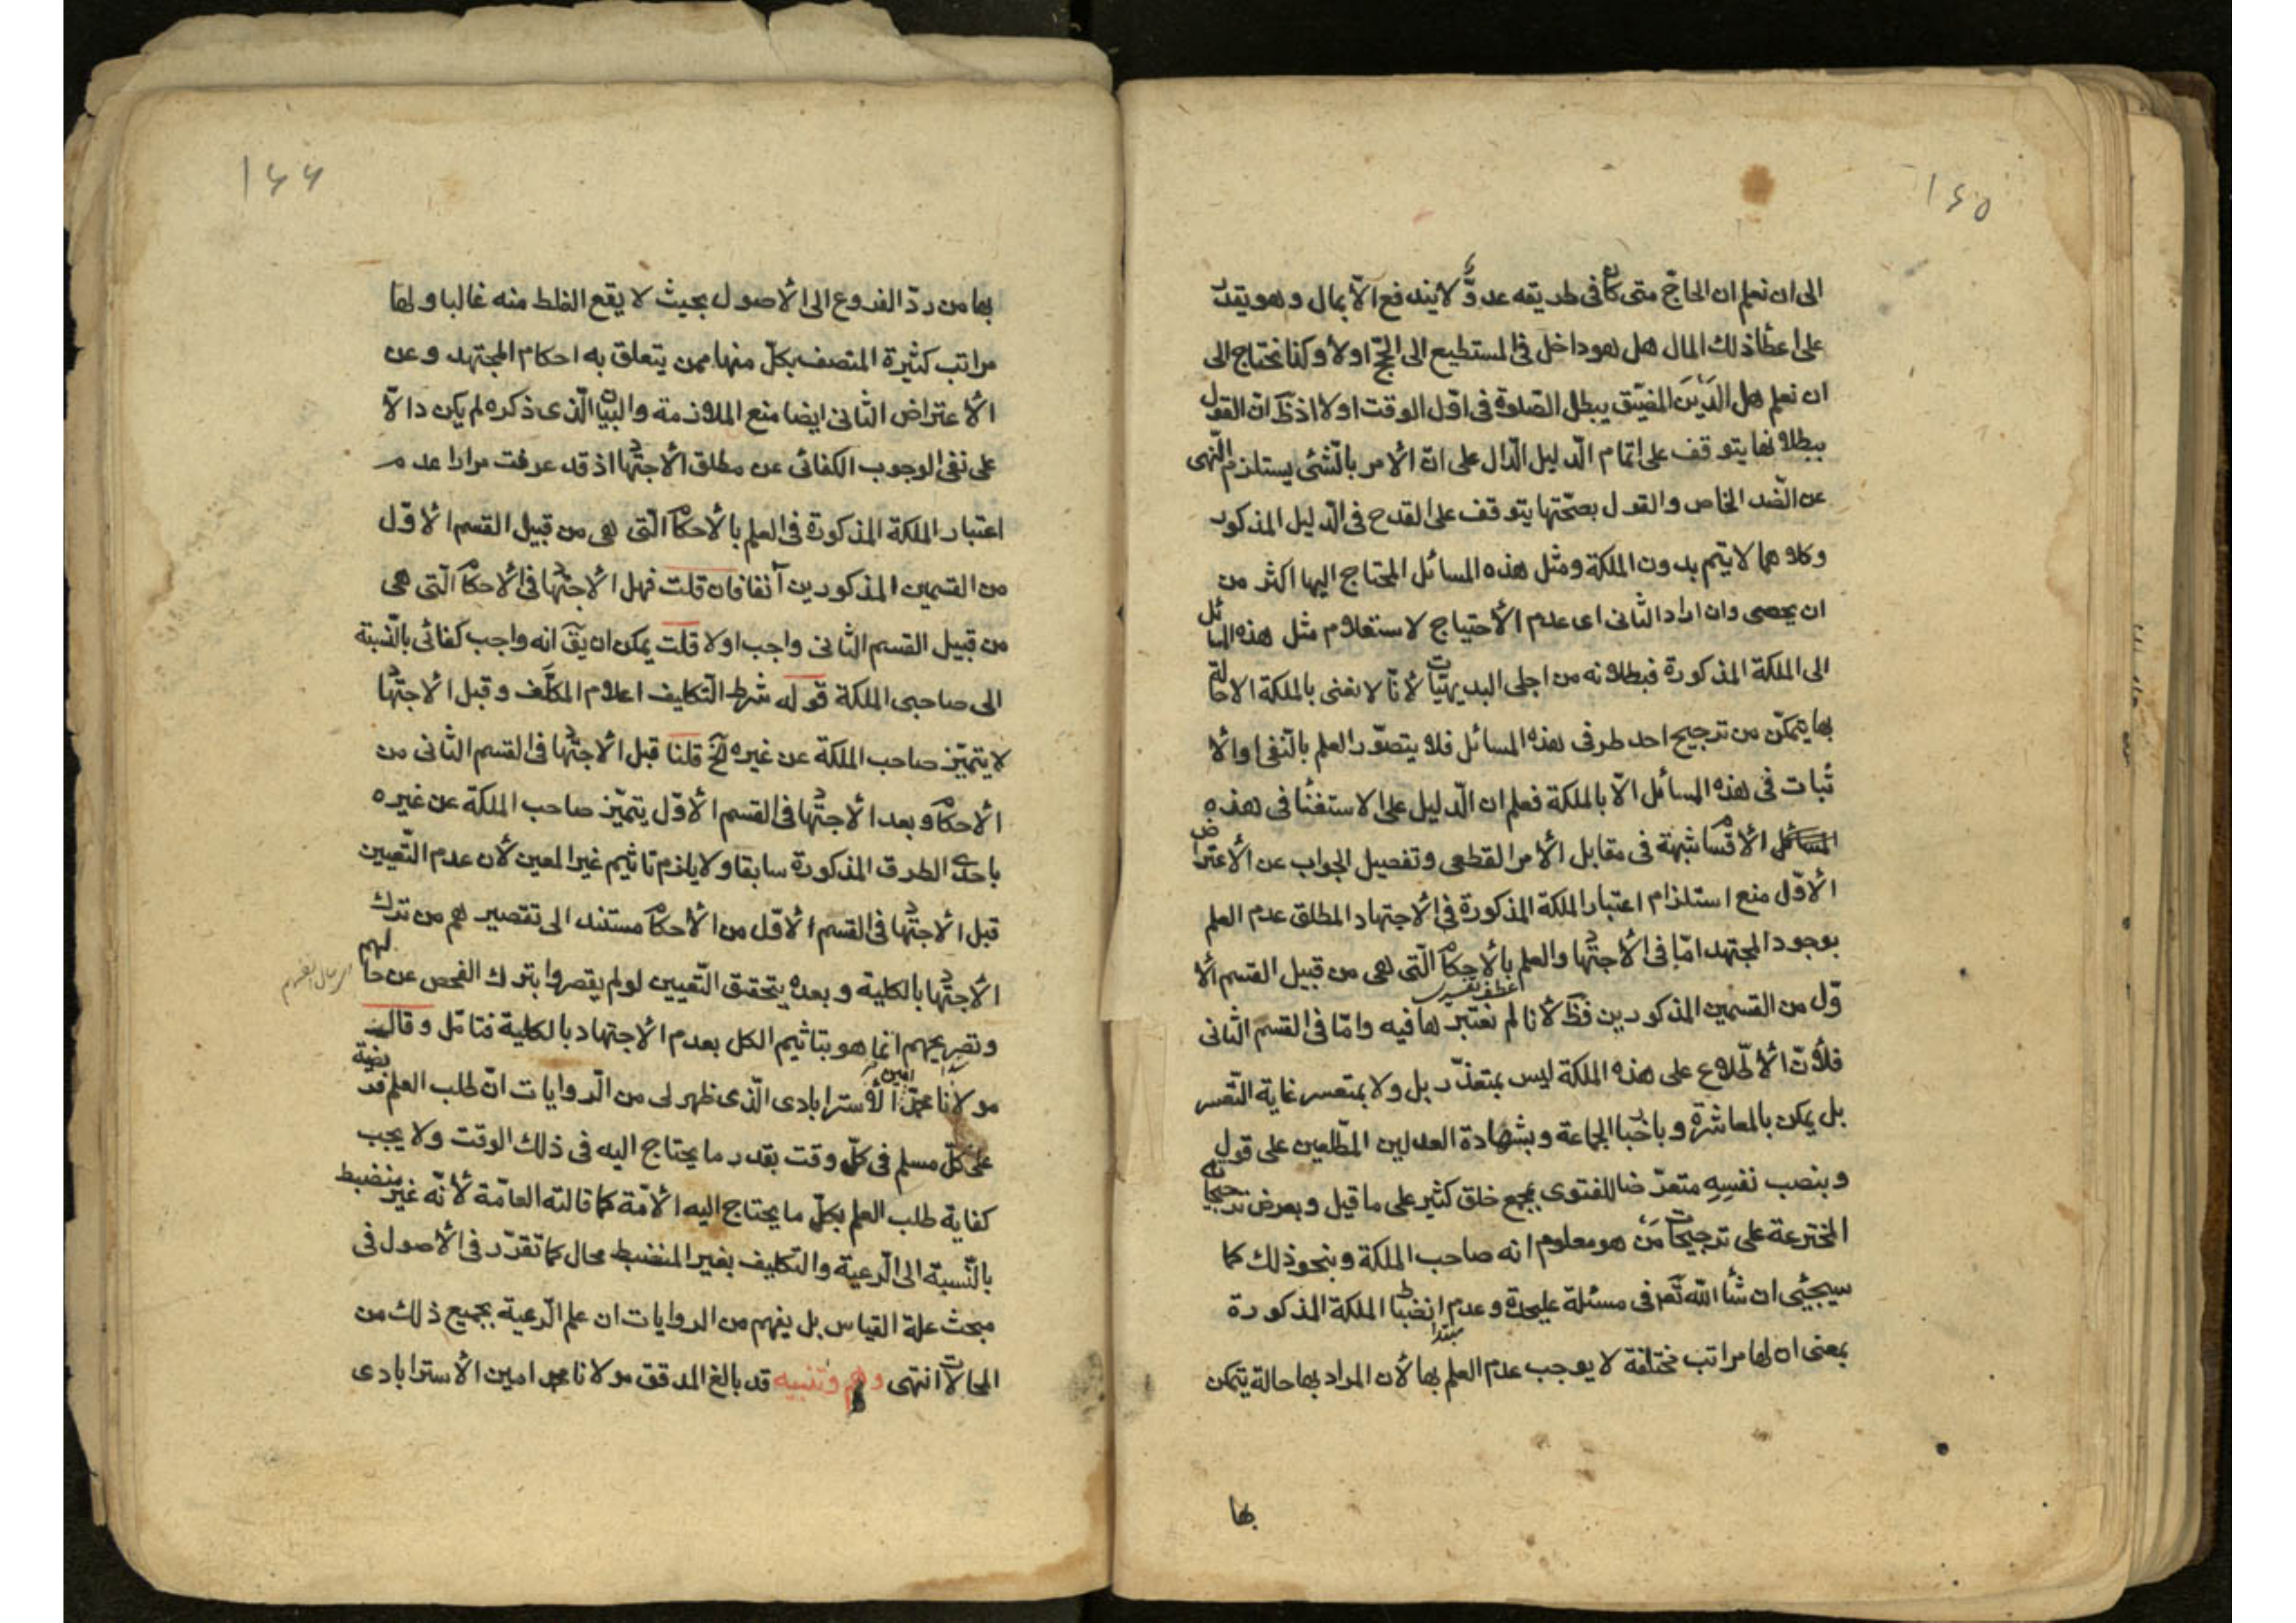 ۱۶۵
الى ان نعلم ان الحاجّ متى كان فى طريقه عدوّ لا يندفع الّا بمال وهو يقدر
على اعطأ ذلك المال هل هو داخل فى المستطيع الى الحجّ اولا وكنا نحتاج الى
ان نعلم هل الدَّين المضيّق يبطل الصّلوة فى اوّل الوقت اولا اذ ظ انّ القول
ببطلانها يتوقف على اتمام الّدليل الّدال على انّ الأمر بالّشئى يستلزم الّنهى
عن الّضد الخاص والقول بصحّتها يتوقف على القدح فى الّدليل المذكور
وكلاهما لا يتم بدون الملكة ومثل هذه المسائل المحتاج اليها اكثر من
ان يحصى وان اراد الثانى اى عدم الأحتياج لاستعلام مثل هذه المسائل
الى الملكة المذكورة فبطلانه من اجلى البديهيّات لأنّا لا نعنى بالملكة الا حالة
بها يتمكّن من ترجيح احد طرفى هذه المسائل فلا يتصوّر العلم بالّنفى او الأ
ثبات فى هذه المسائل الّا بالملكة فعلم ان الّدليل على الاستغنأ فى هذه
الأقسام شبهة فى مقابل الأمر القطعى وتفصيل الجواب عن الأعتراض
الأوّل منع استلزام اعتبار الملكة المذكورة فى الأجتهاد المطلق عدم العلم
بوجود المجتهد امّا فى الأجتهاد والعلم بالأحكام الّتى هى من قبيل القسم الأ
وّل من القسمين المذكورين فظ لأنا لم نعتبرها فيه وامّا فى القسم الثانى
فلأنّ الأطّلاع على هذه الملكة ليس بمتعذّر بل ولا بمتعسر غاية التّعسر
بل يمكن بالمعاشرة وباخبار الجماعة وبشهادة العدلين المطّلعين على قول
وبنصب نفسِهِ متعرّضا للفتوى بمجمع خلق كثير على ما قيل وبعرض ترجيحاته
المخترعة على ترجيحات مَن هو معلوم انه صاحب الملكة وبنحو ذلك كما
سيجئى ان شأ اللّه تعر فى مسئلة عليحدة وعدم انضباط الملكة المذكورة
مبتدا
بمعنى ان لها مراتب مختلفة لا يوجب عدم العلم بها لأن المراد بها حالة يتمكن
بها
۱۶۶
بها من ردّ الفروع الى الأصول بحيث لا يقع الغلط منه غالبا ولها
مراتب كثيرة المتصف بكلّ منها ممن يتعلق به احكام المجتهد وعن
الأعتراض الثّانى ايضا منع الملازمة والبيان الّذى ذكره لم يكن دالّا
على نفى الوجوب الكفائى عن مطلق الأجتهاد اذ قد عرفت مرارا عدم
اعتبار الملكة المذكورة فى العلم بالأحكام الّتى هى من قبيل القسم الأوّل
من القسمين المذكورين آنفا فان قلت فهل الأجتهاد فى الأحكام الّتى هى
من قبيل القسم الثانى واجب اولا قلت يمكن ان يق انه واجب كفائى بالّنسبة
الى صاحبى الملكة قوله شرط الّتكليف اعلام المكلّف وقبل الأجتهاد
لا يتميّز صاحب الملكة عن غيره الخ قلنا قبل الأجتهاد فى القسم الثانى من
الأحكام وبعد الأجتهاد فى القسم الأوّل يتميّز صاحب الملكة عن غيره
باحدى الطرق المذكورة سابقا ولا يلزم تاثيم غير المعين لأن عدم الّتعيين
قبل الأجتهاد فى القسم الأوّل من الأحكام مستند الى تقصيرهم من ترك
الأجتهاد بالكلية وبعده يتحقق الّتعيين لو لم يقصروا بترك الفحص عن حالهم
وتصريحهم انما هو بتاثيم الكل بعدم الأجتهاد بالكلية فتامّل وقال
مولانا محمّد امين الأسترابادى الّذى ظهر لى من الّروايات انّ طلب العلم فريضة
على كلّ مسلم فى كلّ وقت بقدر ما يحتاج اليه فى ذلك الوقت ولا يجب
كفاية طلب العلم بكلّ ما يحتاج اليه الأمّة كما قالته العامّة لأنّه غير منضبط
بالنّسبة الى الّرعية والتكليف بغير المنضبط محال كما تقرّر فى الأصول فى
مبحث علة القياس بل يفهم من الروايات ان علم الّرعية بجميع ذلك من
المحالات انتهى وهم وتنبيه قد بالغ المدقق مولانا محمد امين الأسترابادى